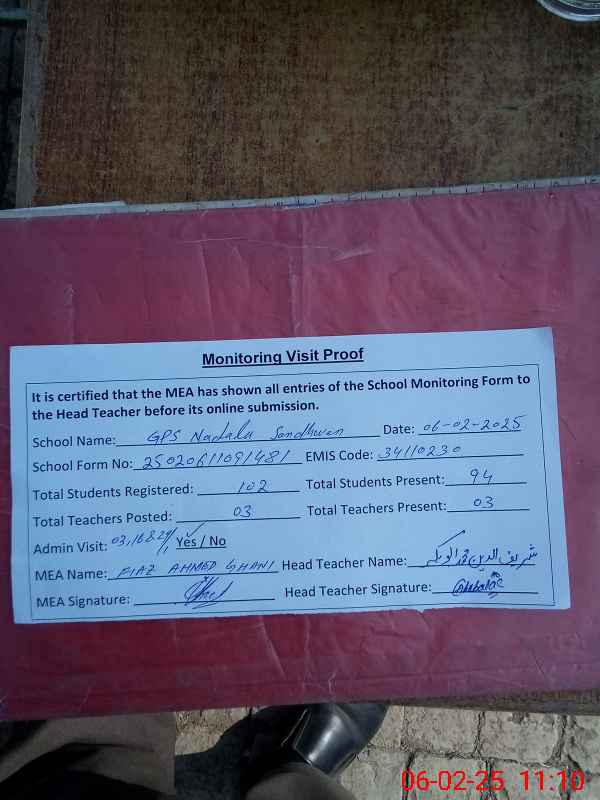 Monitoring Visit Proof
It is certified that the MEA has shown all entries of the School Monitoring Form to
the Head Teacher before its online submission.
School Name: GPS Nadala Sandhwan Date: 06-02-2025
School Form No: 25020611091481 EMIS Code: 34110230
Total Students Registered: 102 Total Students Present: 94
Total Teachers Posted: 03 Total Teachers Present: 03
Admin Visit: 03,16&29/1 Yes / No
MEA Name: FIAZ AHMED GHANI Head Teacher Name: شریف الدین
MEA Signature: Head Teacher Signature:
06-02-25 11:10